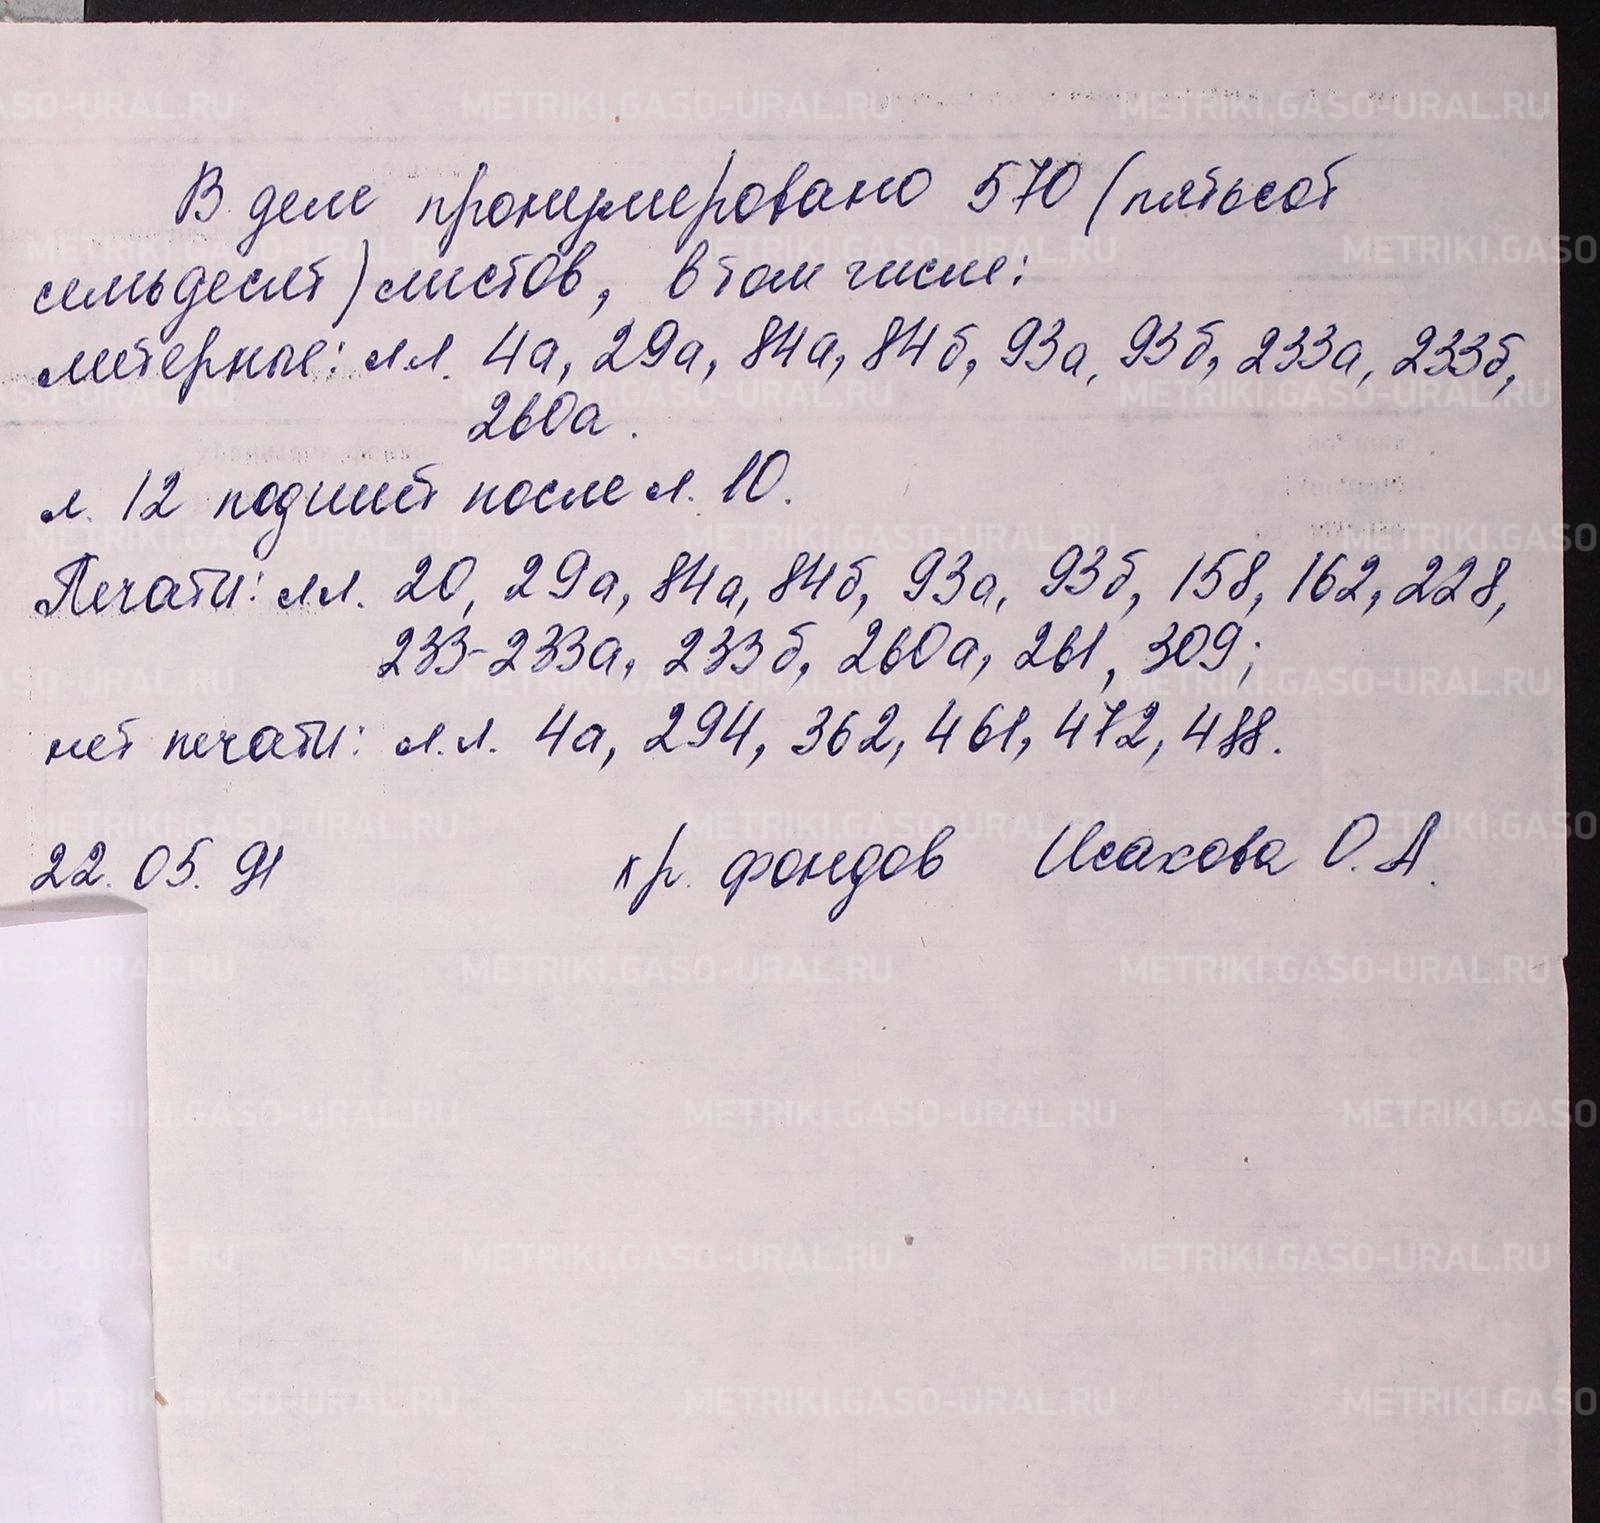 В деле пронумеровано 570 (пятьсот
семьдесят) листов, в том числе:
литерные: л.л. 4а, 29а, 84а, 84б, 93а, 93б, 233а, 233б,
260а.
л. 12 подшит после л. 10.
Печати: л.л. 20, 29а, 84а, 84б, 93а, 93б, 158, 162, 228,
233-233а, 233б, 260а, 261, 309;
нет печати: л.л. 4а, 294, 362, 461, 472, 488.
22.05.91 хр. фондов Исакова О.А.